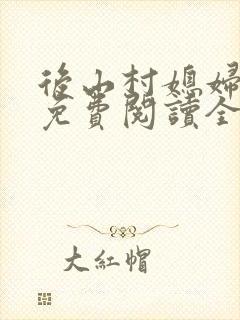 後山村媳婦
免費閱讀全
大紅帽